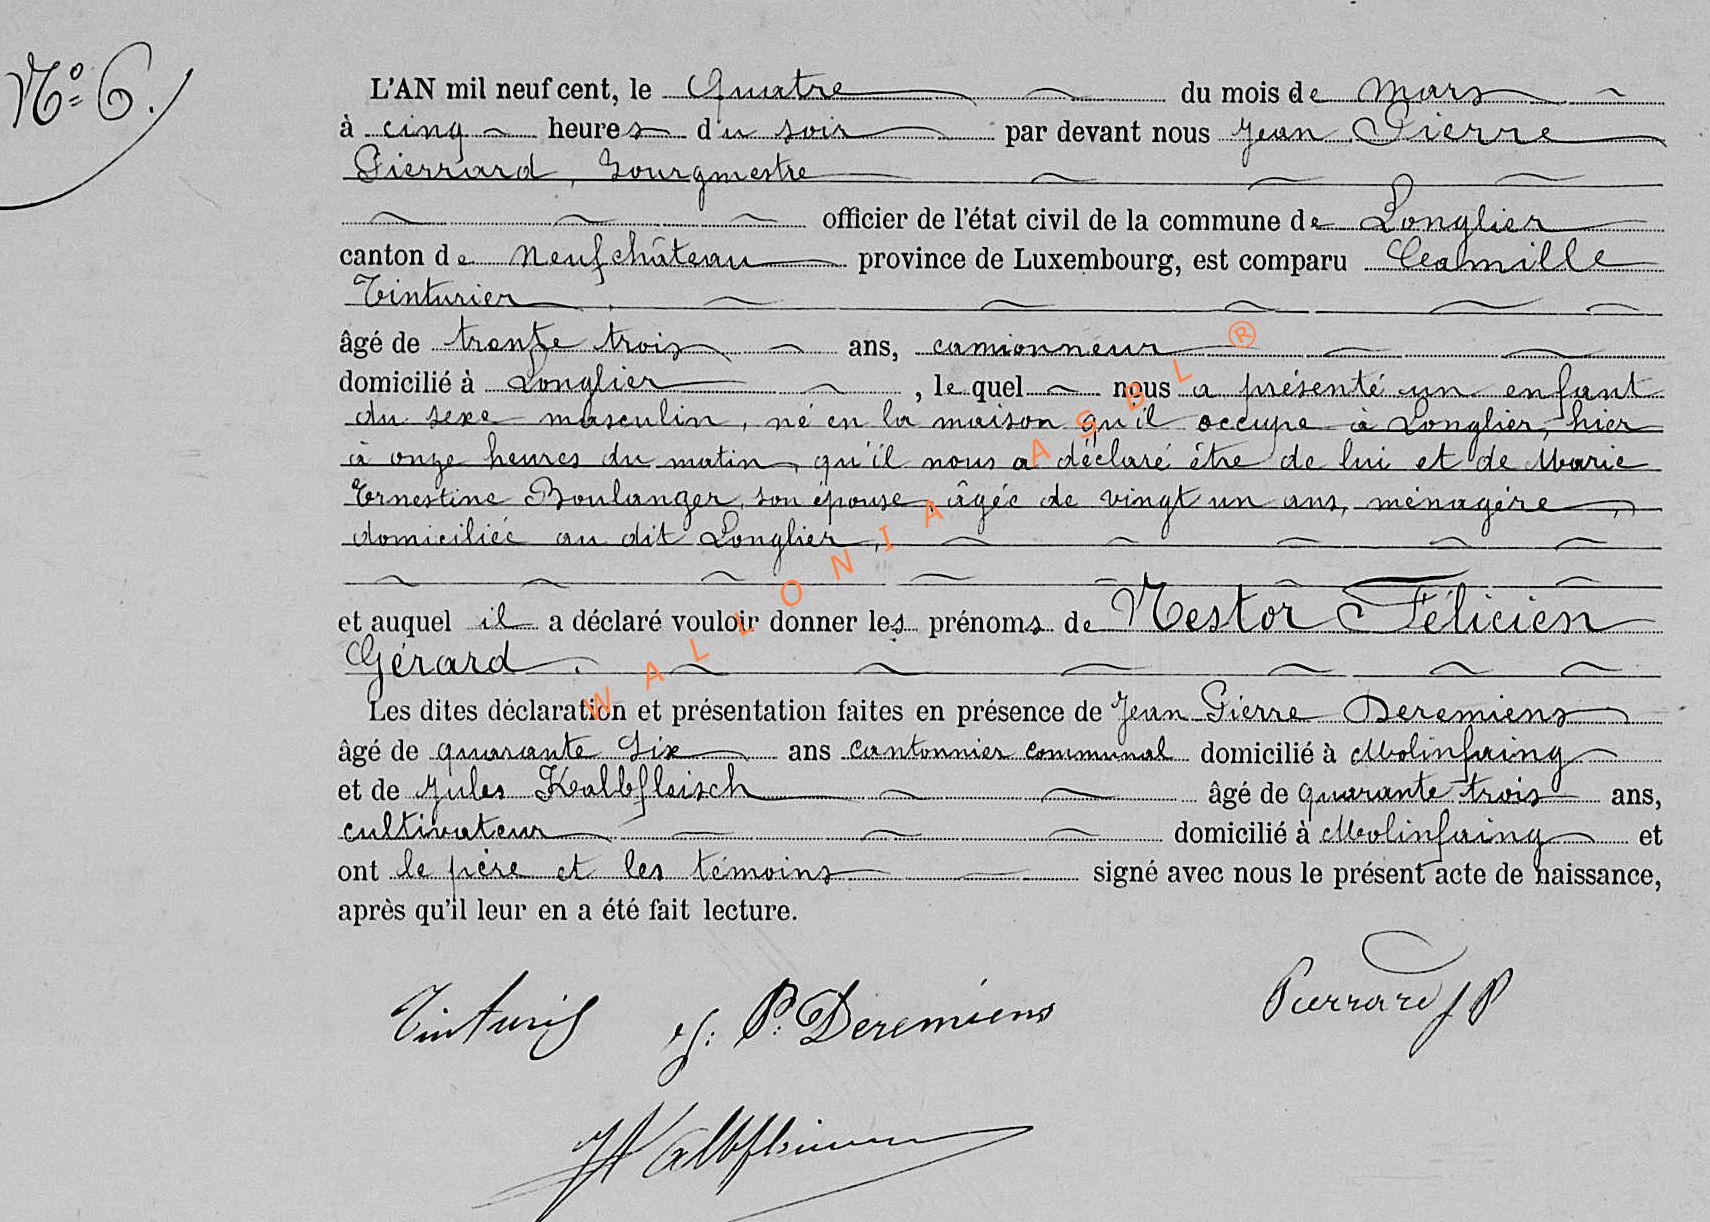 N° 6.
L'AN mil neuf cent, le Quatre du mois de mars
à cinq heures du soir par devant nous Jean Pierre
Pierrard, bourgmestre
officier de l'état civil de la commune de Longlier
canton de Neufchâteau province de Luxembourg, est comparu Camille
Tinturier
âgé de trente trois ans, camionneur
domicilié à Longlier, lequel nous a présenté un enfant
du sexe masculin, né en la maison qu'il occupe à Longlier, hier
à onze heures du matin, qu'il nous a déclaré être de lui et de Marie
Ernestine Boulanger, son épouse, âgée de vingt un ans, ménagère,
domiciliée au dit Longlier,
et auquel il a déclaré vouloir donner les prénoms de Nestor Félicien
Gérard.
Les dites déclaration et présentation faites en présence de Jean Pierre Deremiens
âgé de quarante six ans cantonnier communal domicilié à Molinfaing
et de Jules Kalbfleisch âgé de quarante trois ans,
cultivateur domicilié à Molinfaing et
ont le père et les témoins signé avec nous le présent acte de naissance,
après qu'il leur en a été fait lecture.
J. P. Deremiens Pierrard J P
WALLONIA ASBL ®